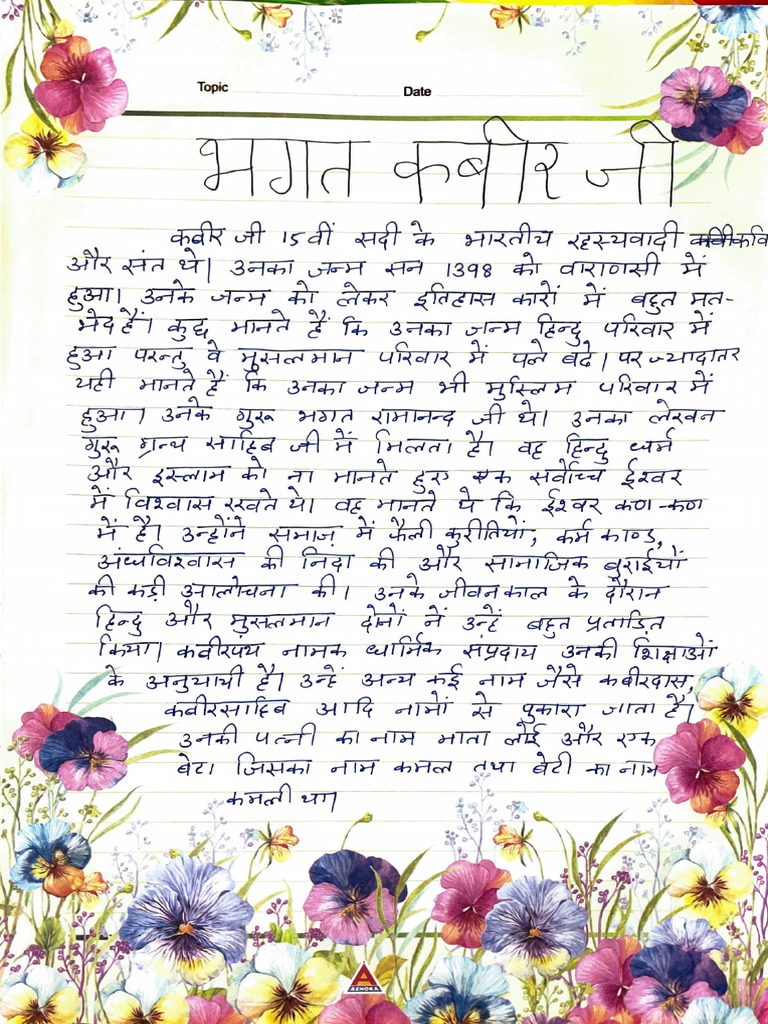 Topic
Date
भगत कबीर जी
कबीर जी 15वीं सदी के भारतीय रहस्यवादी कवि
और संत थे। उनका जन्म सन 1398 को वाराणसी में
हुआ। उनके जन्म को लेकर इतिहास कारों में बहुत मत-
भेद हैं। कुछ मानते हैं कि उनका जन्म हिन्दु परिवार में
हुआ परन्तु वे मुसलमान परिवार में पले बढे। पर ज्यादातर
यही मानते हैं कि उनका जन्म भी मुस्लिम परिवार में
हुआ। उनके गुरू भगत रामानन्द जी थे। उनका लेखन
गुरू ग्रन्थ साहिब जी में मिलता है। वह हिन्दु धर्म
और इस्लाम को ना मानते हुए एक सर्वोच्च ईश्वर
में विश्वास रखते थे। वह मानते थे कि ईश्वर कण-कण
में है। उन्होंने समाज़ में फैली कुरीतियों, कर्म काण्ड,
अंधविश्वास की निंदा की और सामाजिक बुराईयों
की कड़ी आलोचना की। उनके जीवनकाल के दौरान
हिन्दु और मुसलमान दोनों नें उन्हें बहुत प्रताड़ित
किया। कबीरपंथ नामक धार्मिक संप्रदाय उनकी शिक्षाओं
के अनुयायी है। उन्हें अन्य कई नाम जैसे कबीरदास,
कबीरसाहिब आदि नामों से पुकारा जाता है।
उनकी पत्नी का नाम माता लोई और एक
बेटा जिसका नाम कमल तथा बेटी का नाम
कमली था।
ASHOKA